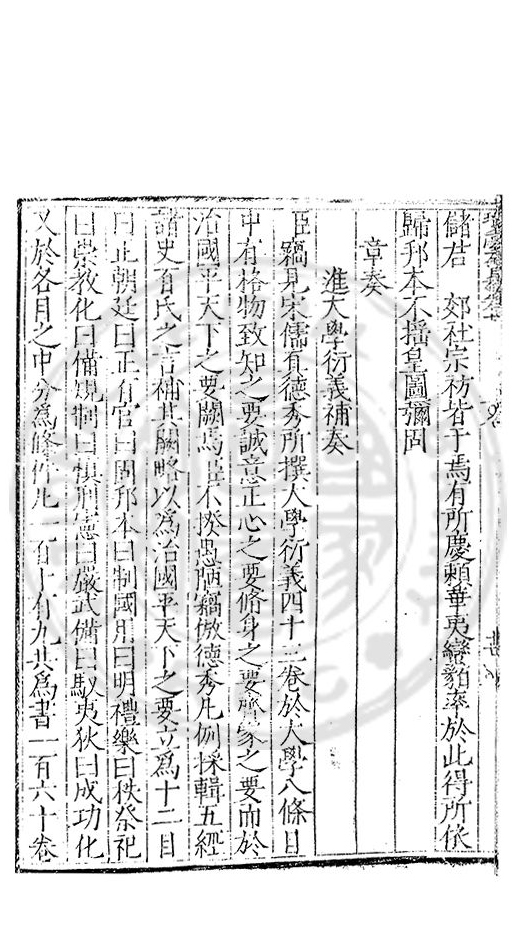 儲君　郊社宗祊皆于焉有所慶賴華夷蠻貊率於此得所依
歸邦本不揺皇圖彌固
章奏
進大學衍義補奏
臣竊見宋儒真德秀所撰大學衍義四十三卷於大學八條目
中有格物致知之要誠意正心之要脩身之要齊家之要而於
治國平天下之要闕焉臣不揆愚陋竊倣德秀凡例採輯五經
諸史百氏之言補其闕略以為治國平天下之要立為十二目
曰正朝廷曰正百官曰固邦本曰制國用曰明禮樂曰秩祭祀
曰崇教化曰備規制曰慎刑憲曰嚴武備曰馭夷狄曰成功化
又於各目之中分為條件凡一百十有九共為書一百六十卷